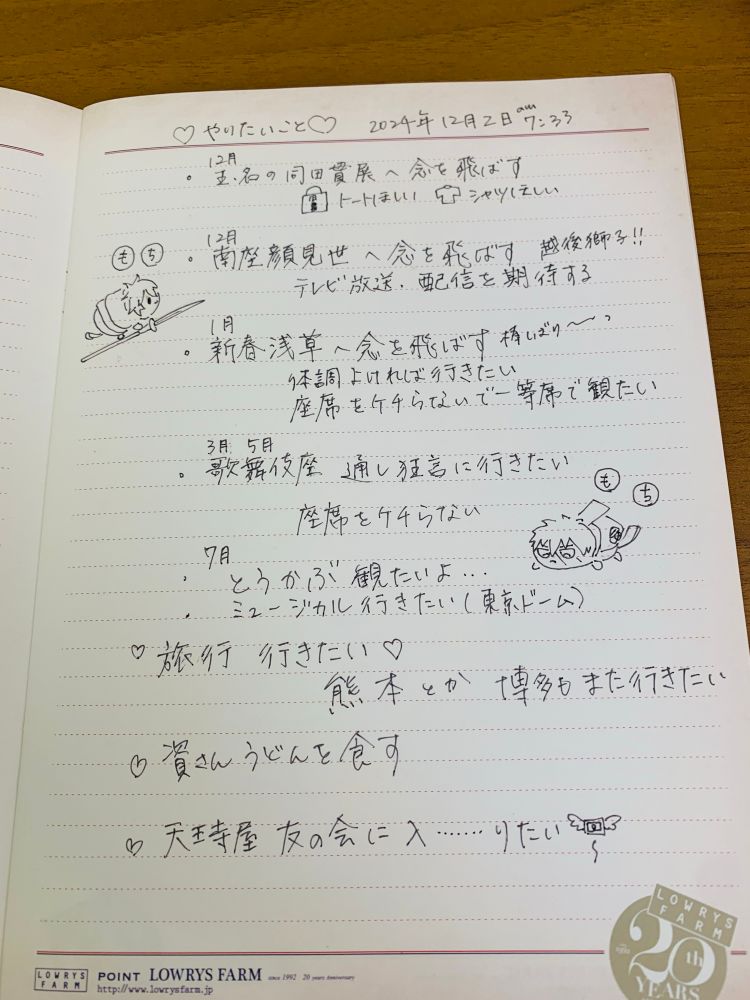 ♡やりたいこと♡ 2024年12月2日 am 7:33
12月
・玉名の同田貫展へ念を飛ばす
トートほしい シャツほしい
12月
・南座顔見世へ念を飛ばす 越後獅子!!
テレビ放送、配信を期待する
もち
1月
・新春浅草へ念を飛ばす 桶しぼり〜〜
体調よければ行きたい
座席をケチらないで一等席で観たい
3月 5月
・歌舞伎座 通し狂言に行きたい
座席をケチらない
もち
7月
・とうかぶ観たいよ...
・ミュージカル行きたい(東京ドーム)
♡旅行 行きたい♡
熊本とか 博多もまた行きたい
♡資さんうどんを食す
♡天王寺屋 友の会に入……りたい
LOWRYS FARM
20th YEARS
LOWRYS FARM POINT LOWRYS FARM since 1992 20 years Anniversary
http://www.lowrysfarm.jp